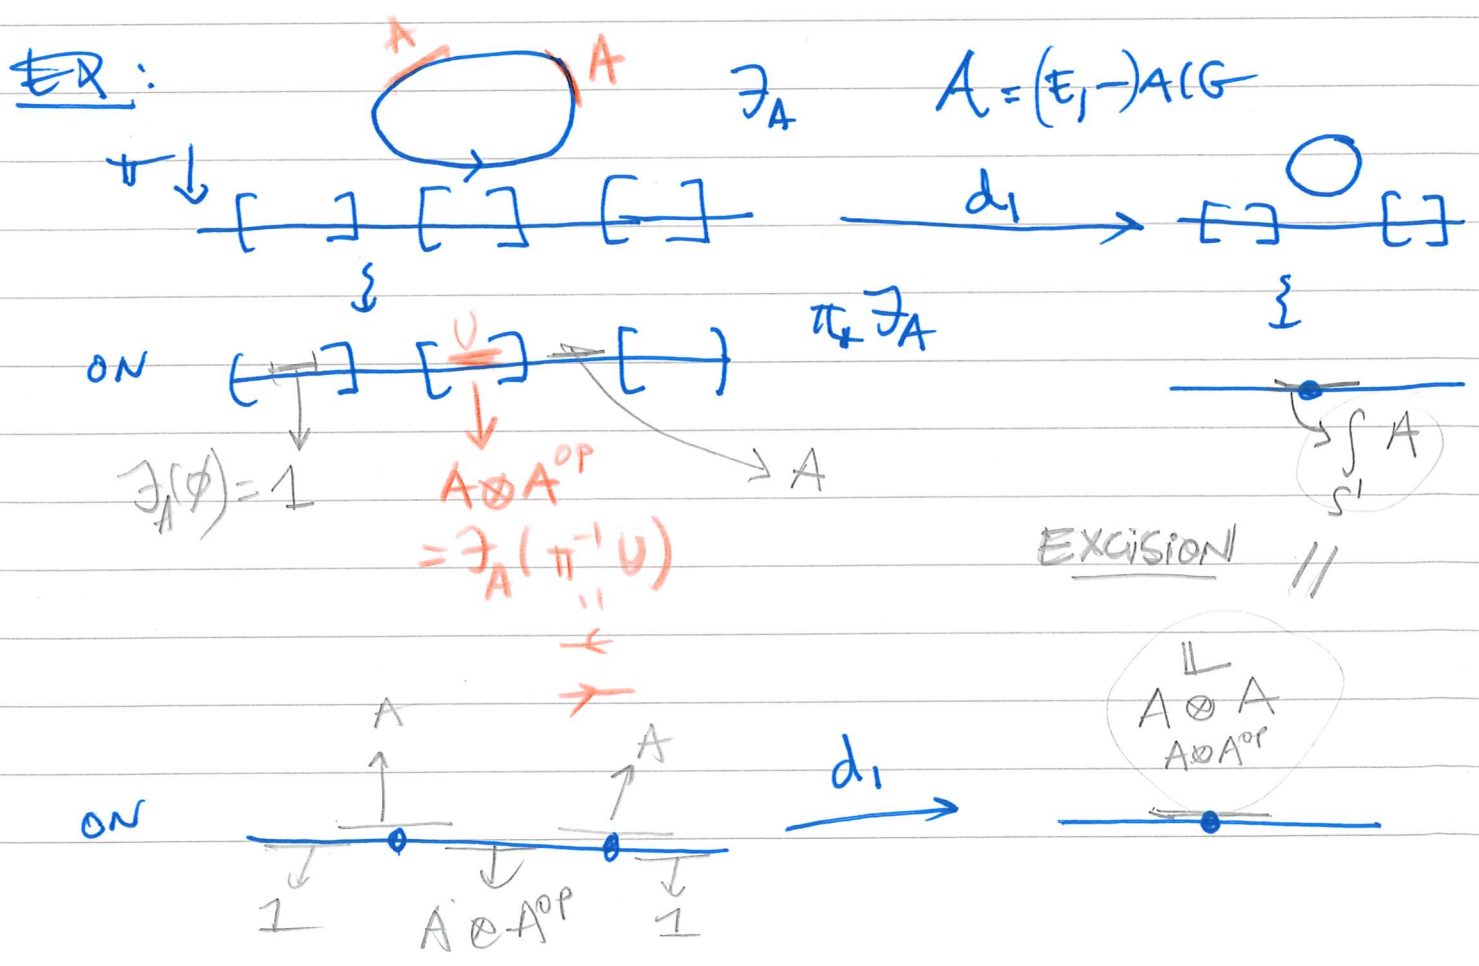 EX:
A A F_A A = (E_1-)ALG
π ↓ [ ] [ ] [ ] d_1 → [ ] [ ]
ON ( ] [ U ] [ ) π_* F_A
F_A(∅) = 1 A ⊗ A^{op} A ∫_{S^1} A
= F_A(π^{-1} U) EXCISION //
"
A A A ⊗^{𝕃}_{A⊗A^{op}} A
ON d_1
1 A ⊗ A^{op} 1